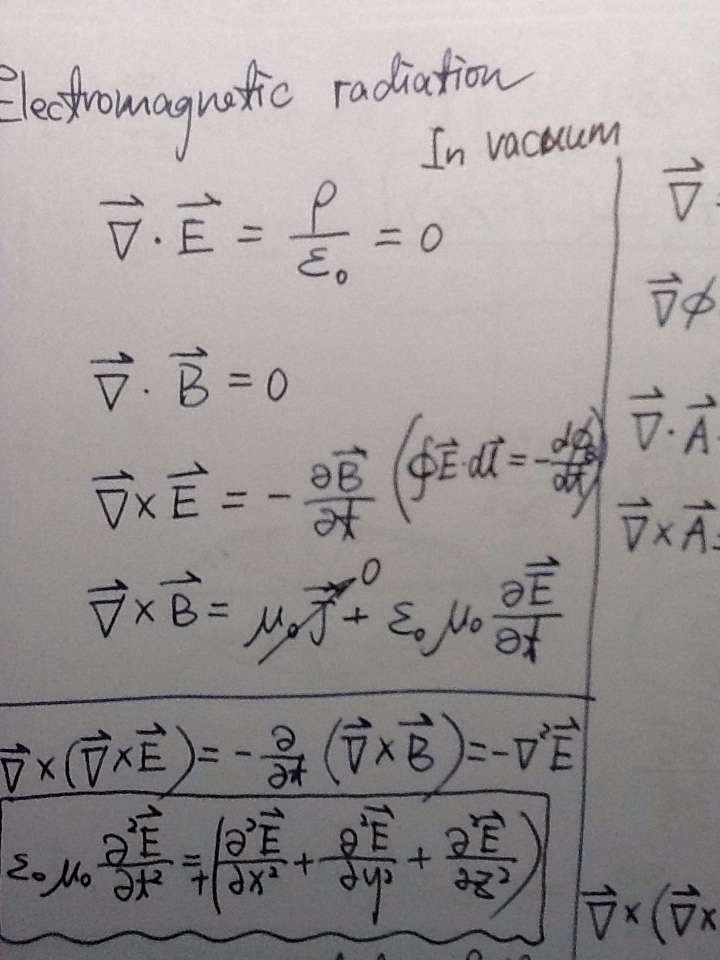 Electromagnetic radiation
In vacuum
∇⃗ · E⃗ = ρ/ε₀ = 0
∇⃗ · B⃗ = 0
∇⃗ × E⃗ = - ∂B⃗/∂t (∮E⃗·dl⃗ = - dϕ_B/dt)
∇⃗ × B⃗ = μ₀J⃗ 0 + ε₀ μ₀ ∂E⃗/∂t
∇⃗ × (∇⃗ × E⃗) = - ∂/∂t (∇⃗ × B⃗) = - ∇²E⃗
ε₀ μ₀ ∂²E⃗/∂t² = + (∂²E⃗/∂x² + ∂²E⃗/∂y² + ∂²E⃗/∂z²)
∇⃗
∇⃗ϕ
∇⃗ · A⃗
∇⃗ × A⃗ =
∇⃗ × (∇⃗ ×